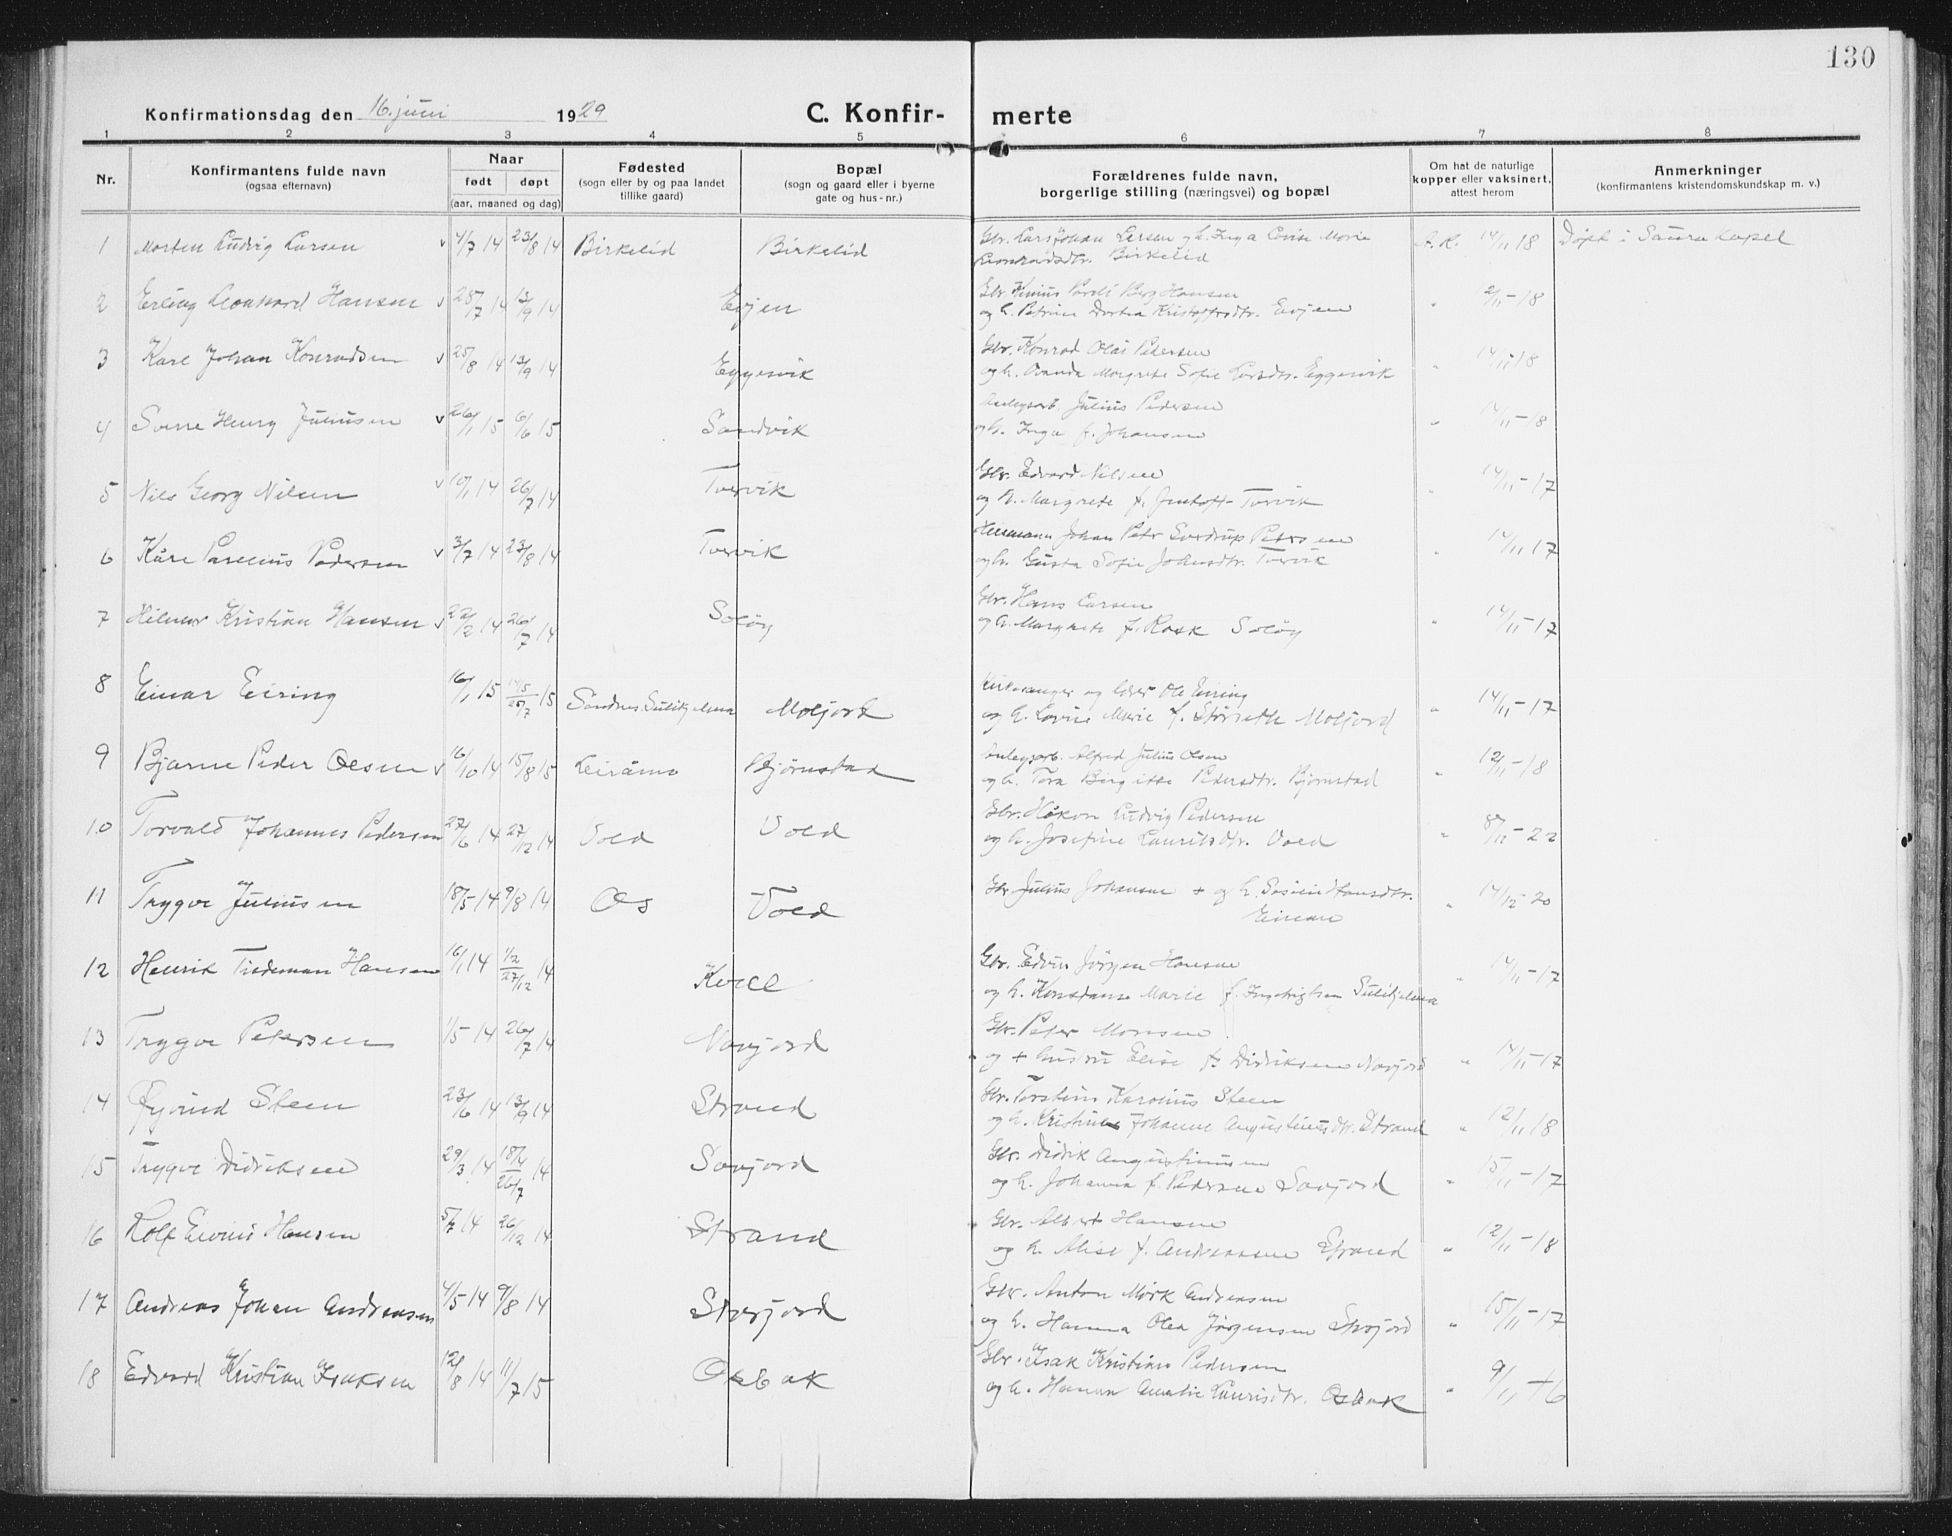 130
Konfirmationsdag den 16. juni 1929 C. Konfir- merte
1 2 3 4 5 6 7 8
Nr. Konfirmantens fulde navn (ogsaa efternavn) Naar født døpt (aar, maaned og dag) Fødested (sogn eller by og paa landet tillike gaard) Bopæl (sogn og gaard eller i byerne gate og hus-nr.) Forældrenes fulde navn, borgerlige stilling (næringsvei) og bopæl Om hat de naturlige kopper eller vaksinert, attest herom Anmerkninger (konfirmantens kristendomskundskap m. v.)
1 Morten Ludvig Larsen v 4/7 14 23/8 14 Birkelid Birkelid Gbr. Lars Johan Larsen og h. Inga Lovise Marie
Leonhardsdtr. Birkelid A. R. 14/11 18 Døpt i Saura kapel
2 Erling Leonhard Hansen v 28/7 14 13/9 14 Evjen Gbr. Berg Hansen
og h. Petrine Dortea Kristoffersdtr. Evjen " 2/11-18
3 Karl Johan Konradsen v 25/8 14 13/9 14 Eggesvik Gbr. Konrad Olai Pedersen
og h. Ovanda Margrete Sofie Larsdtr. Eggesvik " 14/11-18
4 Sverre Henry Juliussen v 26/1 15 6/6 15 Sandvik Anlegsarb. Julius Pedersen
og h. Inga f. Johansen " 14/11-18
5 Nils Georg Nilsen v 10/1 14 26/7 14 Tverrvik Gbr. Edvard Nilsen
og h. Margrete f. Jentoft- Torvik " 14/11-17
6 Kåre Parelius Pedersen v 3/7 14 23/8 14 Tverrvik Hermann Johan Peter Sverdrup Petersen
og h. Gusta Sofie Johansdtr. Torvik " 14/11 17
7 Hilmar Kristian Hansen v 22/2 14 26/7 14 Soløy Gbr. Hans Larsen
og h. Margrete f. Rask Soløy " 14/11-17
8 Einar Eiring 16/1 15 14/5 25/7 15 Sandnes. Sulitjelma Moljord Kirkesanger og lærer Ole Eiring
og h. Lovise Marie f. Størseth Moljord " 14/11-17
9 Bjarne Peder Olsen v 16/10 14 15/8 15 Leiråmo Bjørnstad Anlegsarb. Alfred Julius Olsen
og h. Tora Birgitte Pedersdtr. Bjørnstad " 12/11-18
10 Torvald Johannes Pedersen 27/6 14 27/12 14 Vold Vold Gbr. Håkon Ludvig Pedersen
og h. Josefine Lauritsdtr. Vold " 8/11-22
11 Trygve Juliussen 18/5 14 9/8 14 Os Vold Gbr Julius Johansen + og h. Hansdtr. " 14/12-20
12 Henrik Tidemann Hansen 16/1 14 1/2 27/12 14 Kvæl Gbr. Edvin Jørgen Hansen
og h. Konstanse Marie f. Ingebrigtsen Sulitjelma " 14/11-17
13 Trygve Petersen 1/5 14 26/7 14 Navjord Gbr. Peter Monsen
og + hustru Elise f. Didriksen Navjord " 14/11-17
14 Øyvind Steen 23/6 14 13/9 14 Strand Gbr. Torstein Karolius Steen
og h. Kristine Johanne Augustinusdtr. Strand " 12/11 18
15 Trygve Didriksen 29/3 14 18/4 26/7 14 Savjord Gbr. Didrik Augustinussen
og h. Johanna f. Pedersen Savjord " 15/11-17
16 Rolf Hansen 5/7 14 26/12 14 Strand Gbr. Albert Hansen
og h. Alise f. Andreassen Strand " 12/11-18
17 Andreas Johan Andreasen 4/5 14 9/8 14 Storjord Gbr. Anton Mørk Andreasen
og h. Hanna Olea Jørgensen Storjord " 15/11-17
18 Edvard Kristian Isaksen 12/8 14 11/7 15 Osbak Gbr. Isak Kristian Pedersen
og h. Hanna Amalie Lauritsdtr. Osbak " 9/11 +6